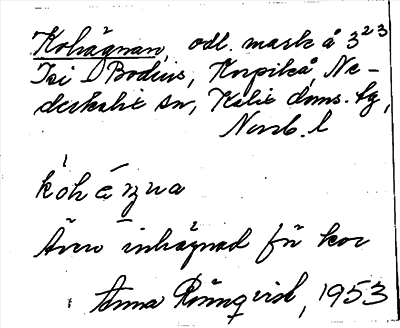 Kohägnan, odl. mark å 3²³
Isi D Bodius, Korpikå, Ne-
derkalix sn, Kalix doms. tg,
Norrb. l
kohägna
Även inhägnad för kor
Anna Rönnqvist, 1953